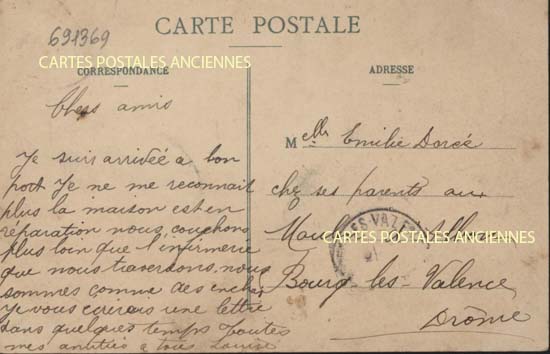 691369
CARTE POSTALE
CARTES POSTALES ANCIENNES
CORRESPONDANCE
Chers amis
Je suis arrivée a bon
port Je ne me reconnait
plus la maison est en
réparation nous couchons
plus loin que l'infirmerie
que nous traversons, nous
sommes comme des
Je vous écrirais une lettre
dans quelques temps toutes
mes amitiés a tous Louise
ADRESSE
Melle Emilie Dorée
chez ses parents aux
CARTES POSTALES ANCIENNES
Bourg-les-Valence
Drôme